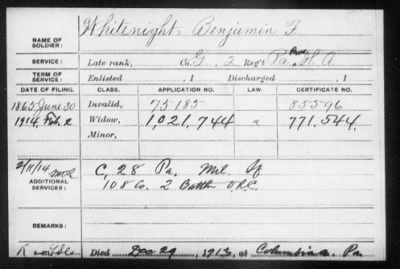 NAME OF SOLDIER: Whitenight, Benjamin F.
SERVICE: Late rank, Co. G, 2 Reg't Pa. H. A
TERM OF SERVICE: Enlisted , 1 Discharged , 1
DATE OF FILING. CLASS. APPLICATION NO. LAW. CERTIFICATE NO.
1865 June 30 Invalid, 75185 85596
1914, Feb. 2 Widow, 1,021,744 771,544.
Minor,
2/11/14 C, 28 Pa. Mil. Inf
ADDITIONAL SERVICES: 108 Co. 2 Batt'n V.R.C.
REMARKS:
Died Dec 29, 1913, at Columbia, Pa.